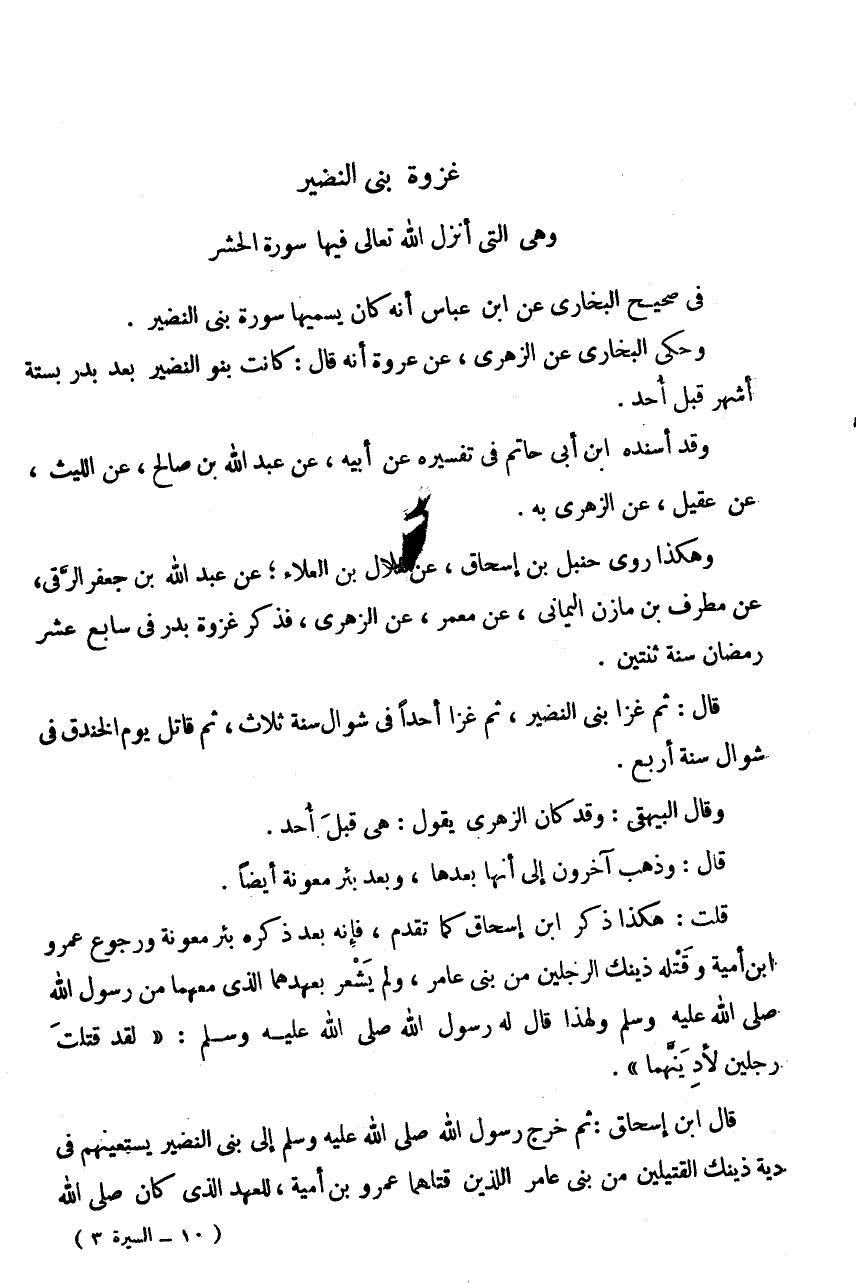 غزوة بنى النضير
وهى التى أنزل الله تعالى فيها سورة الحشر
فى صحيح البخارى عن ابن عباس أنه كان يسميها سورة بنى النضير .
وحكى البخارى عن الزهرى ، عن عروة أنه قال : كانت بنو النضير بعد بدر بستة
أشهر قبل أُحد .
وقد أسنده ابن أبى حاتم فى تفسيره عن أبيه ، عن عبد الله بن صالح ، عن الليث ،
عن عقيل ، عن الزهرى به .
وهكذا روى حنبل بن إسحاق ، عن هلال بن العلاء ؛ عن عبد الله بن جعفر الرَّقى ،
عن مطرف بن مازن اليمانى ، عن معمر ، عن الزهرى ، فذكر غزوة بدر فى سابع عشر
رمضان سنة ثنتين .
قال : ثم غزا بنى النضير ، ثم غزا أحداً فى شوال سنة ثلاث ، ثم قاتل يوم الخندق فى
شوال سنة أربع .
وقال البيهقى : وقد كان الزهرى يقول : هى قبلَ أُحد .
قال : وذهب آخرون إلى أنها بعدها ، وبعد بئر معونة أيضاً .
قلت : هكذا ذكر ابن إسحاق كما تقدم ، فإنه بعد ذكره بئر معونة ورجوع عمرو
ابن أمية وقَتْله ذينك الرجلين من بنى عامر ، ولم يَشْعر بعهدهما الذى معهما من رسول الله
صلى الله عليه وسلم ولهذا قال له رسول الله صلى الله عليه وسلم : « لقد قتلتَ
رجلين لأدِيَنَّهما » .
قال ابن إسحاق : ثم خرج رسول الله صلى الله عليه وسلم إلى بنى النضير يستعينهم فى
دية ذينك القتيلين من بنى عامر اللذين قتلهما عمرو بن أمية ، للعهد الذى كان صلى الله
( ١٠ ــ السيرة ٣ )